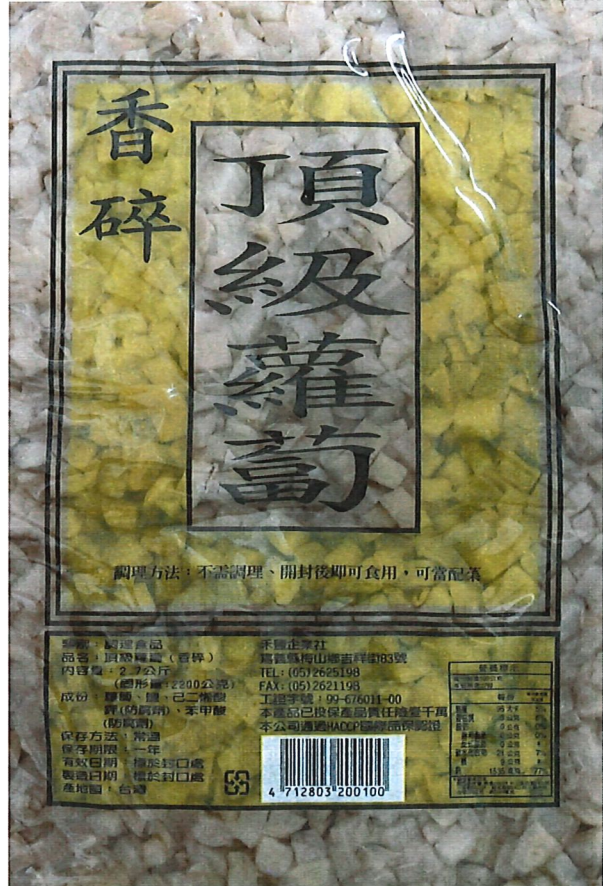 香碎
頂級蘿蔔
調理方法:不需調理、開封後即可食用,可當配菜
類別:調理食品
品名:頂級蘿蔔(香碎)
內容量:2.7公斤
(固形量:2200公克)
成份:蘿蔔、鹽、己二烯酸
鉀(防腐劑)、苯甲酸
(防腐劑)
保存方法:常溫
保存期限:一年
有效日期:標於封口處
製造日期:標於封口處
產地國:台灣
禾豐企業社
嘉義縣梅山鄉吉祥街83號
TEL:(05)2625198
FAX:(05)2621198
工證字號:99-676011-00
本產品已投保產品責任險壹千萬
本公司通過HACCP國際品保認證
4 712803 200100
營養標示